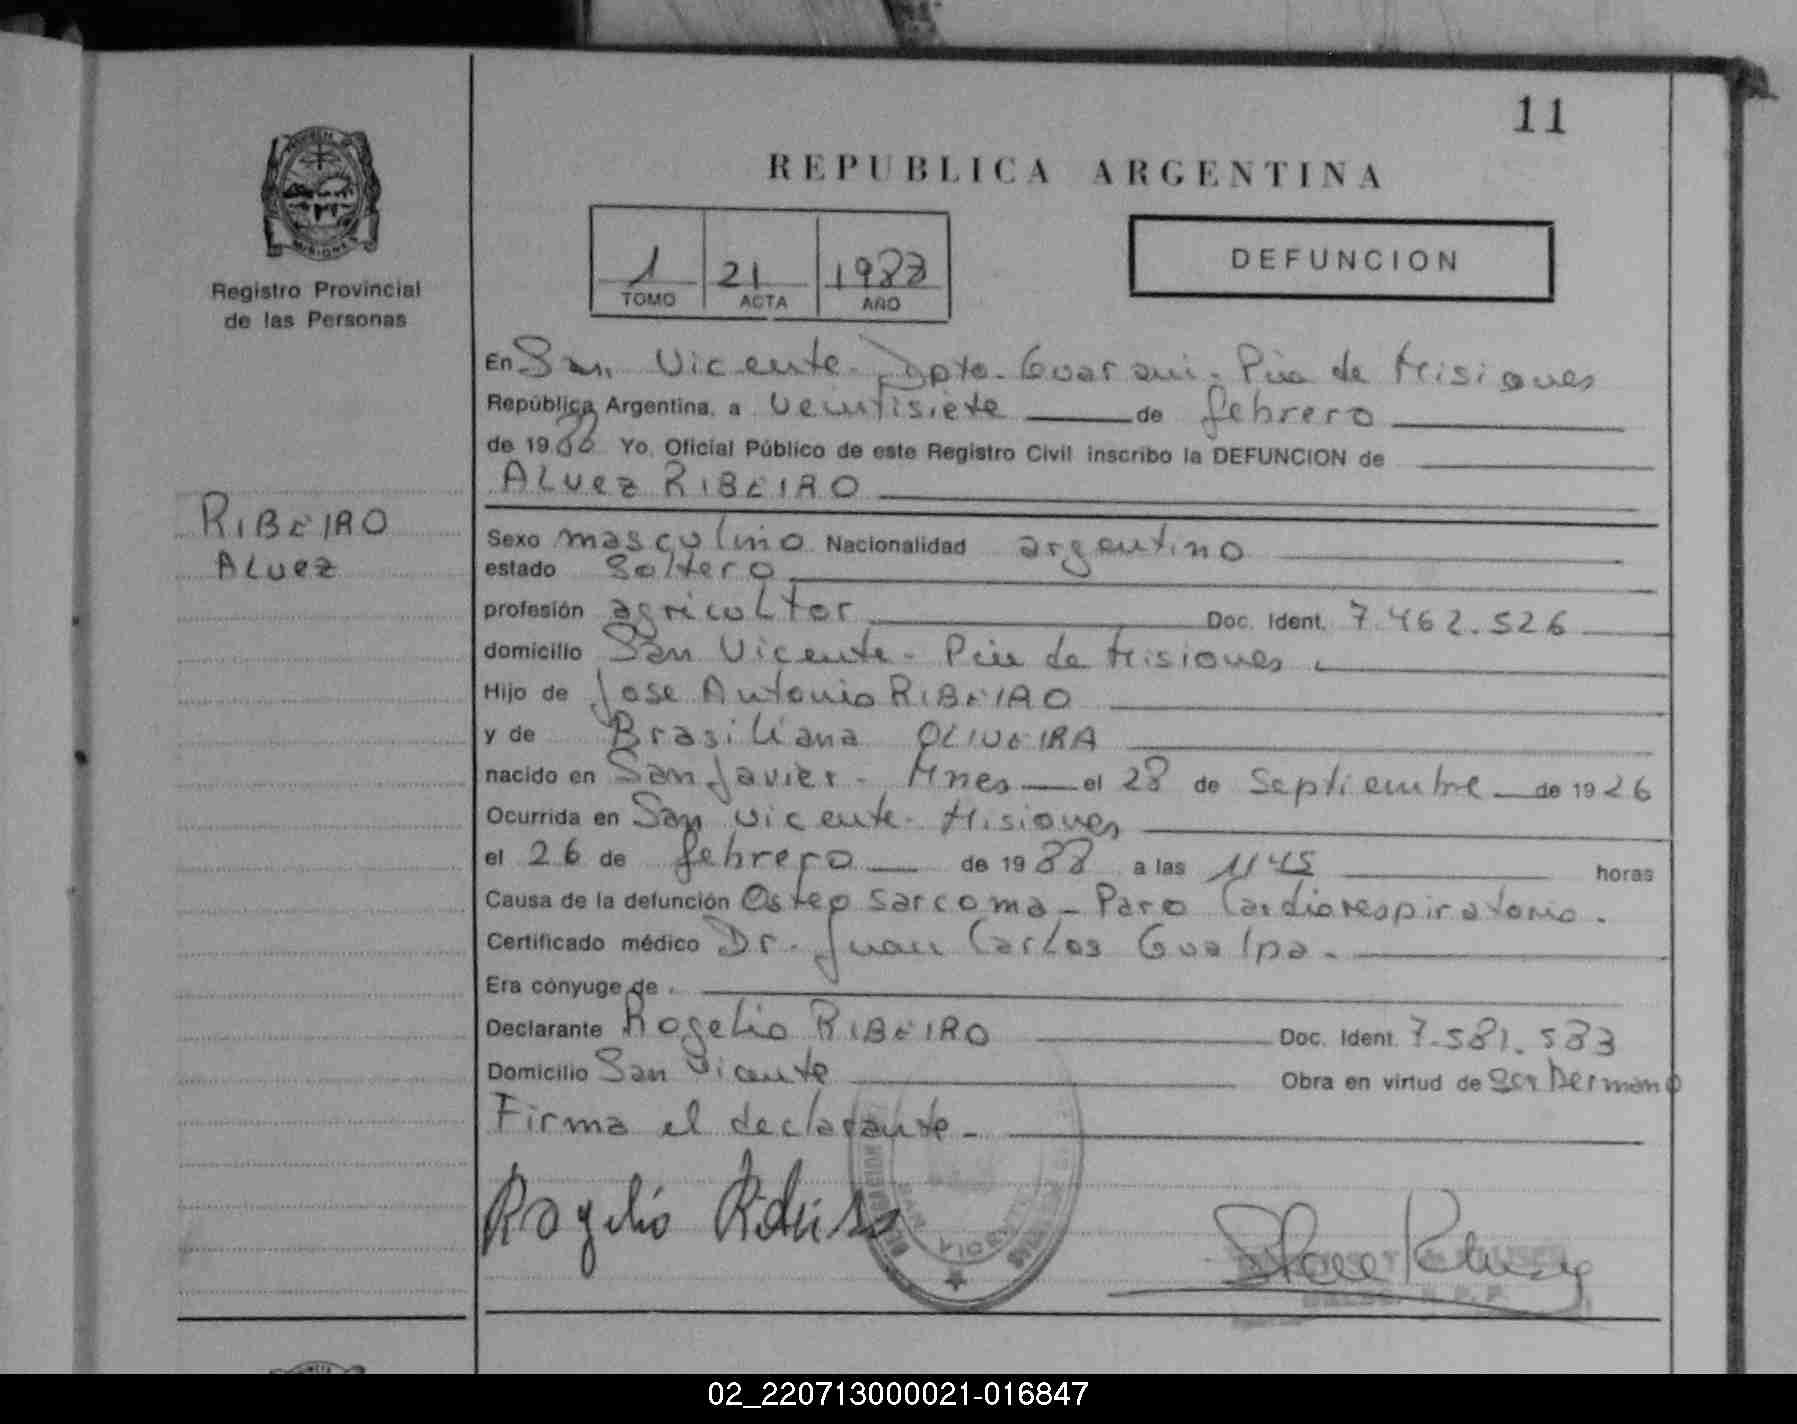 11
REPUBLICA ARGENTINA
MISIONES
Registro Provincial
de las Personas
1 21 1988
TOMO ACTA AÑO
DEFUNCION
En San Vicente - Dpto. Guarani - Pcia de Misiones
República Argentina, a veintisiete de febrero
de 1988 Yo, Oficial Público de este Registro Civil inscribo la DEFUNCION de
ALVEZ RIBEIRO
RIBEIRO
ALVEZ
Sexo masculino Nacionalidad argentino
estado Soltero
profesión agricultor Doc. Ident. 7.462.526
domicilio San Vicente - Pcia de Misiones
Hijo de Jose Antonio RIBEIRO
y de Brasiliana OLIVEIRA
nacido en San Javier - Mnes el 28 de Septiembre de 1926
Ocurrida en San Vicente - Misiones
el 26 de febrero de 1988 a las 1145 horas
Causa de la defunción Osteo sarcoma - Paro Cardiorespiratorio.
Certificado médico Dr. Juan Carlos Gualpa -
Era cónyuge de
Declarante Rogelio RIBEIRO Doc. Ident. 7.581.583
Domicilio San Vicente Obra en virtud de ser hermano
Firma el declarante -
Rogelio
02_220713000021-016847